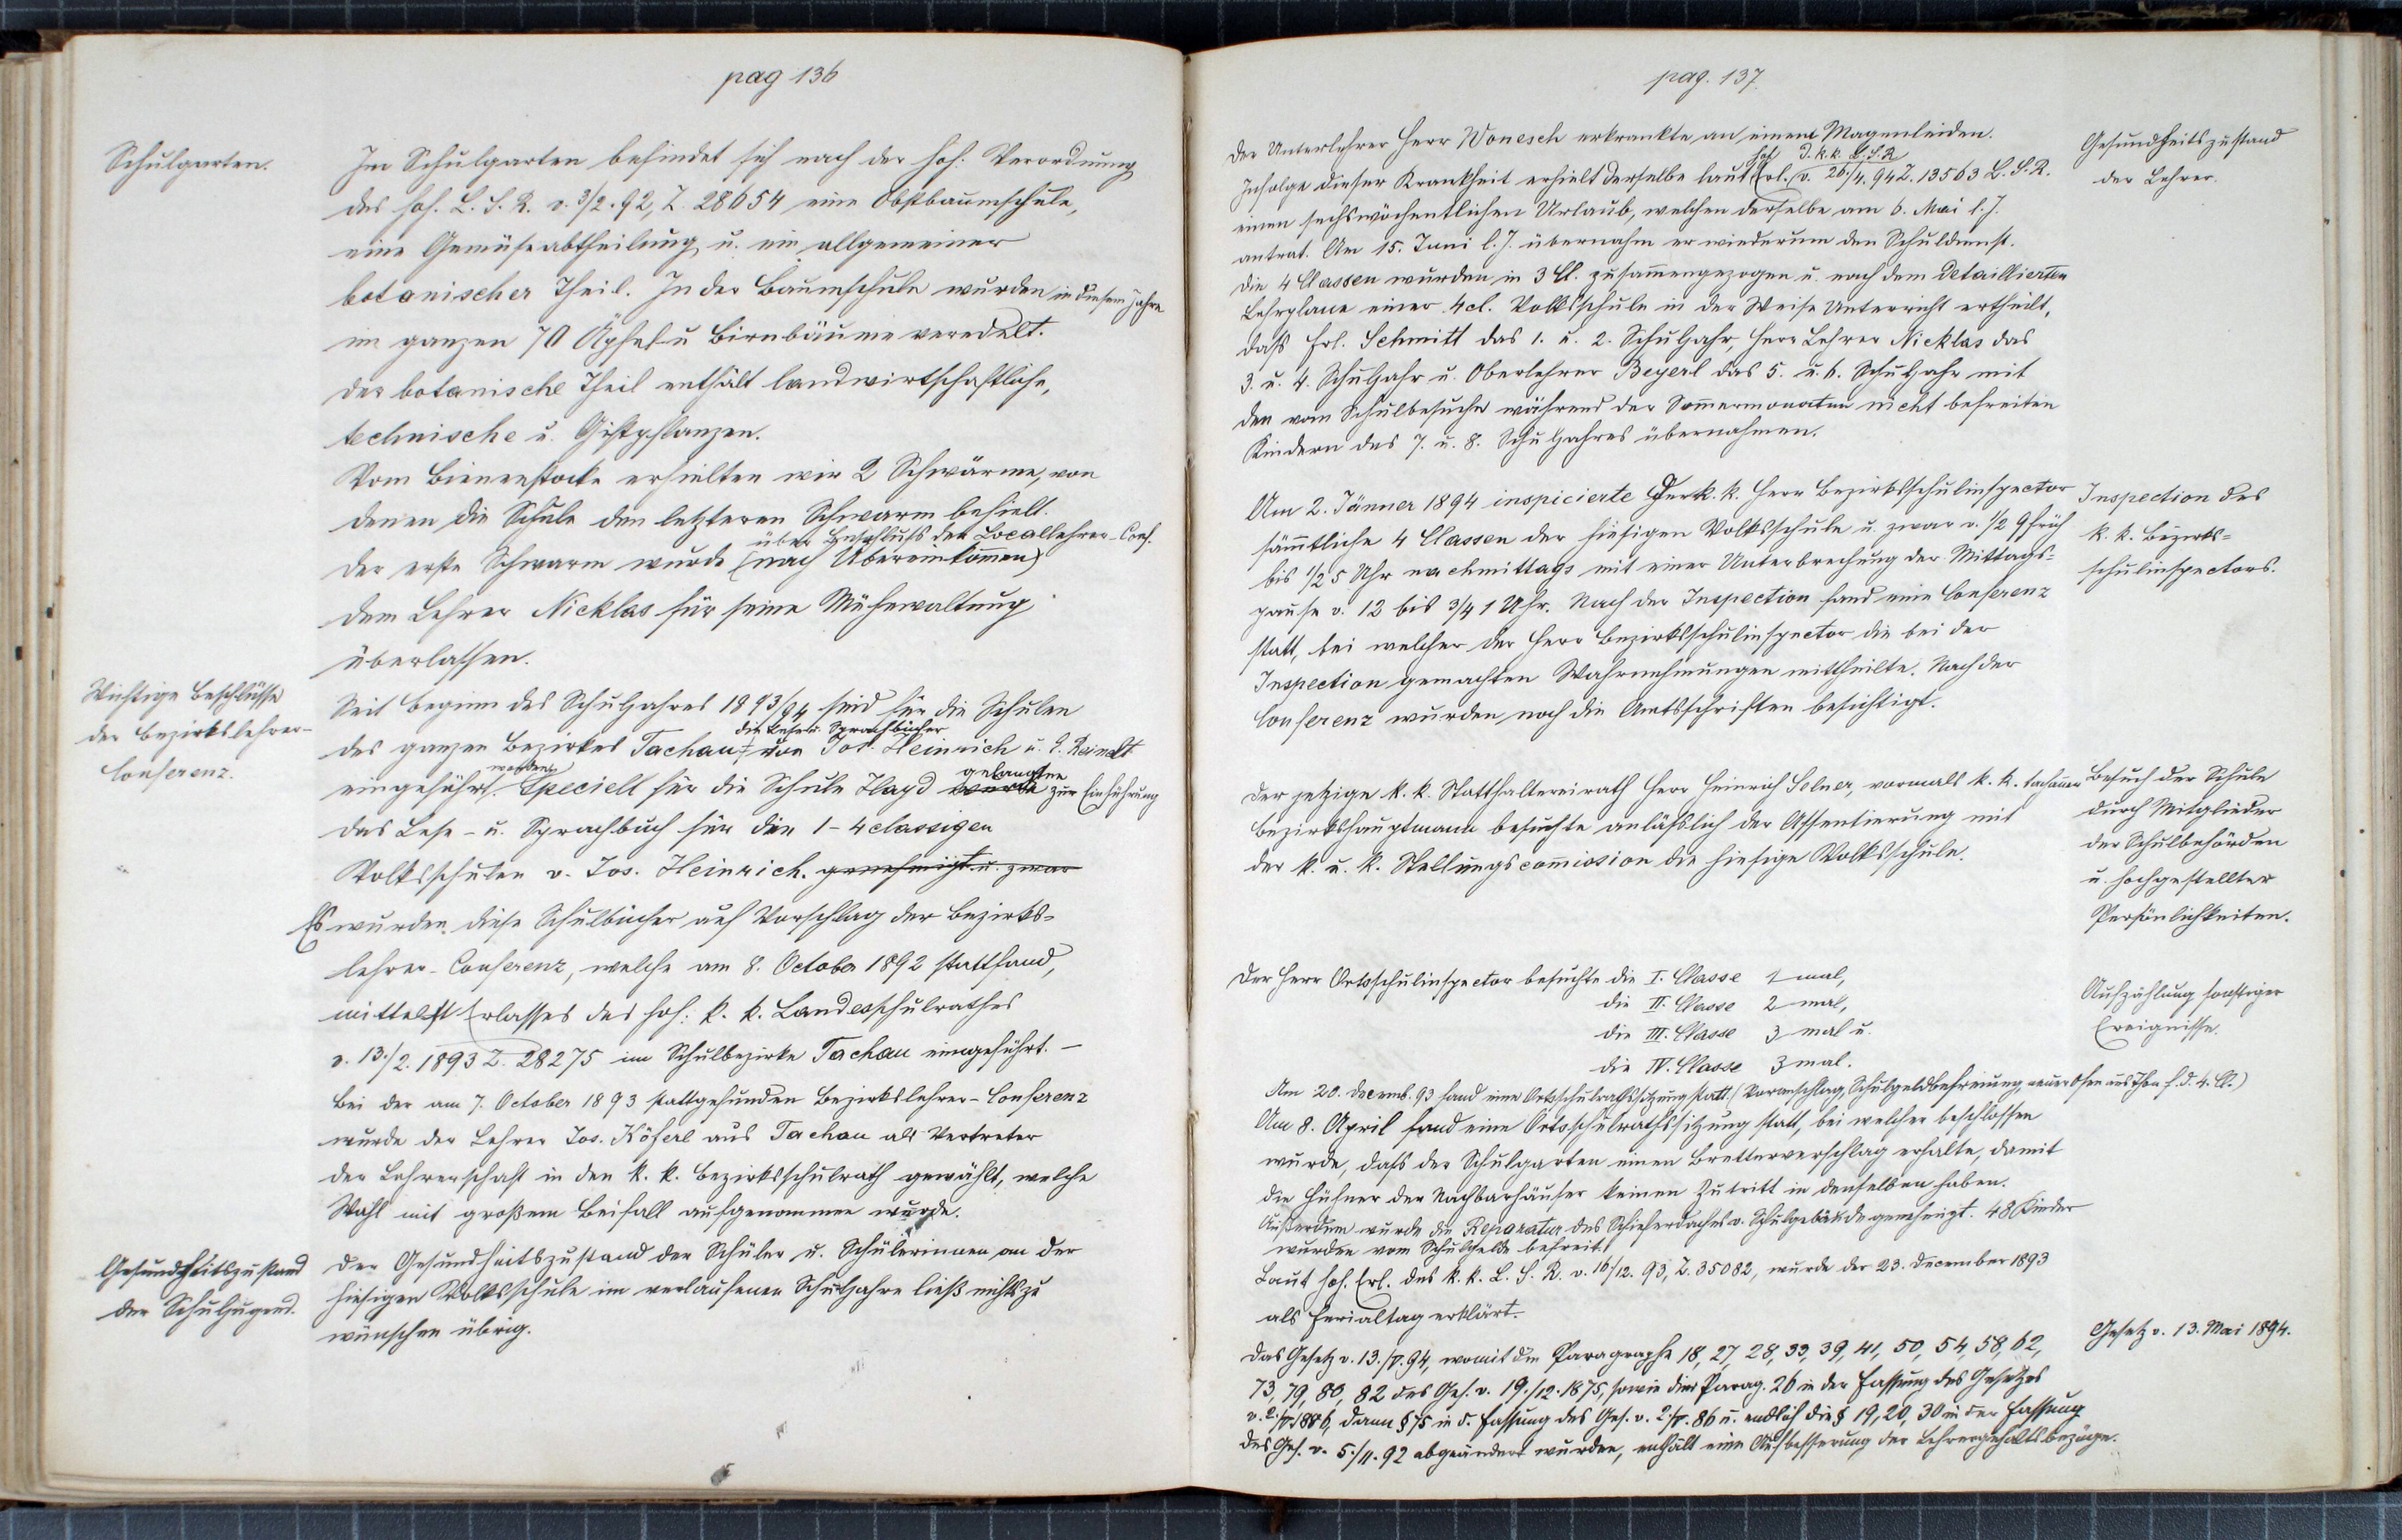 pag 136
Schulgarten.
Im Schulgarten befindet sich nach der hoh. Verordnung
des hoh. L. S. R. v. 3/2. 92, Z. 28654 eine Obstbaumschule,
eine Gemüseabtheilung u. ein allgemeiner
botanischer Theil. In der Baumschule wurden in diesem Jahre
im ganzen 70 Äpfel u Birnbäume veredelt.
Der botanische Theil enthält landwirtschaftliche,
technische u. Giftpflanzen.
Vom Bienenstocke erhielten wir 2 Schwärme, von
denen die Schule den letzteren Schwarm behielt.
über Beschluß der Locallehrer-Conf.
Der erste Schwarm wurde (nach Übereinkommen)
dem Lehrer Nicklas für seine Mühewaltung
überlassen.
Wichtige Beschlüsse
der Bezirkslehrer-
Conferenz.
Seit Beginn des Schuljahres 1893/94 sind für die Schulen
die Lese u. Sprachbücher
des ganzen Bezirkes Tachau von Jos. Heinrich u. E. Reinelt
worden gelangten
eingeführt. Speciell für die Schule Hayd wurde zur Einführung
das Lese- u. Sprachbuch für die 1-4 classigen
Volksschulen v. Jos. Heinrich. genehmigt u. zwar
Es wurden diese Schulbücher auf Vorschlag der Bezirks-
lehrer-Conferenz, welche am 8. October 1892 stattfand,
mittelst Erlasses des hoh. k. k. Landesschulrathes
v. 13./2. 1893 Z. 28275 im Schulbezirke Tachau eingeführt. -
Bei der am 7. October 1893 stattgefunden Bezirkslehrer-Conferenz
wurde der Lehrer Jos. Köferl aus Tachau als Vertreter
der Lehrerschaft in den k. k. Bezirksschulrath gewählt, welche
Wahl mit großem Beifall aufgenommen wurde.
Gesundheitszustand
der Schuljugend.
Der Gesundheitszustand der Schüler u. Schülerinnen an der
hiesigen Volksschule im verlaufenen Schuljahre ließ nichts zu
wünschen übrig.
pag. 137.
Gesundheitszustand
der Lehrer.
Der Unterlehrer Herr Wonesch erkrankte an einem Magenleiden.
hoh d. k. k. L. S. R.
Infolge dieser Krankheit erhielt derselbe laut Erl. v. 26./4. 94 Z. 13563 L. S. R.
einen sechswöchentlichen Urlaub, welchen derselbe am 6. Mai l. J.
antrat. Am 15. Juni l. J. übernahm er wiederum den Schuldienst.
Die 4 Classen wurden in 3 Cl. zusammengezogen u. nach dem detaillierten
Lehrplane einer 4cl. Volksschule in der Weise Unterricht ertheilt,
daß Frl. Schmitt das 1. u. 2. Schuljahr, Herr Lehrer Nicklas das
3. u. 4. Schuljahr u. Oberlehrer Beyerl das 5. u. 6. Schuljahr mit
den vom Schulbesuche während der Sommermonaten nicht befreiten
Kindern des 7. u. 8. Schuljahres übernahmen.
Inspection des
k. k. Bezirks-
schulinspectors.
Am 2. Jänner 1894 inspicierte der k. k. Herr Bezirksschulinspector
sämmtliche 4 Classen der hiesigen Volksschule u. zwar v. 1/2 9 früh
bis 1/2 5 Uhr nachmittags mit einer Unterbrechung der Mittags-
pause v. 12 bis 3/4 1 Uhr. Nach der Inspection fand eine Conferenz
statt, bei welcher der Herr Bezirksschulinspector die bei der
Inspection gemachten Wahrnehmungen mittheilte. Nach der
Conferenz wurden noch die Amtsschriften besichtigt.
Besuch der Schule
durch Mitglieder
der Schulbehörden
u. hochgestellter
Persönlichkeiten.
Der jetzige k. k. Statthaltereirath Herr Heinrich Selner, vormals k. k. Tachauer
Bezirkshauptmann besuchte anläßlich der Assentierung mit
der k. u. k. Stellungscommission die hiesige Volksschule.
Aufzählung sonstiger
Ereignisse.
Der Herr Ortsschulinspector besuchte die I. Classe 1 mal,
die II. Classe 2 mal,
die III. Classe 3 mal u.
die IV. Classe 3 mal.
Am 20. Decemb. 93 fand eine Ortsschulrathssitzung statt. (Voranschlag, Schulgeldbefreiung neuer Ofen aus Thon f. d. 4. Cl.)
Am 8. April fand eine Ortsschulrathssitzung statt, bei welcher beschlossen
wurde, daß der Schulgarten einen Bretterverschlag erhalte, damit
die Hühner der Nachbarhäuser keinen Zutritt in denselben haben.
Außerdem wurde die Reparatur des Schieferdaches v. Schulgebäude genehmigt. 48 Kinder
wurden vom Schulgelde befreit.
Laut hoh. Erl. des k. k. L. S. R. v. 16/12. 93, Z. 35082, wurde der 23. December 1893
als Ferialtag erklärt.
Gesetz v. 13. Mai 1894.
Das Gesetz v. 13./V. 94, womit die Paragraphe 18, 27, 28, 33, 39, 41, 50, 54, 58, 62,
73, 79, 80, 82 des Ges. v. 19./12. 1875, sowie der Parag. 26 in der Fassung des Gesetzes
v. 2./V. 1886, dann § 75 in d. Fassung des Ges. v. 2./V. 86 u. endlich die § 19, 20, 30 in der Fassung
des Ges. v. 5./11. 92 abgeändert wurden, enthält eine Aufbesserung der Lehrergehaltsbezüge.